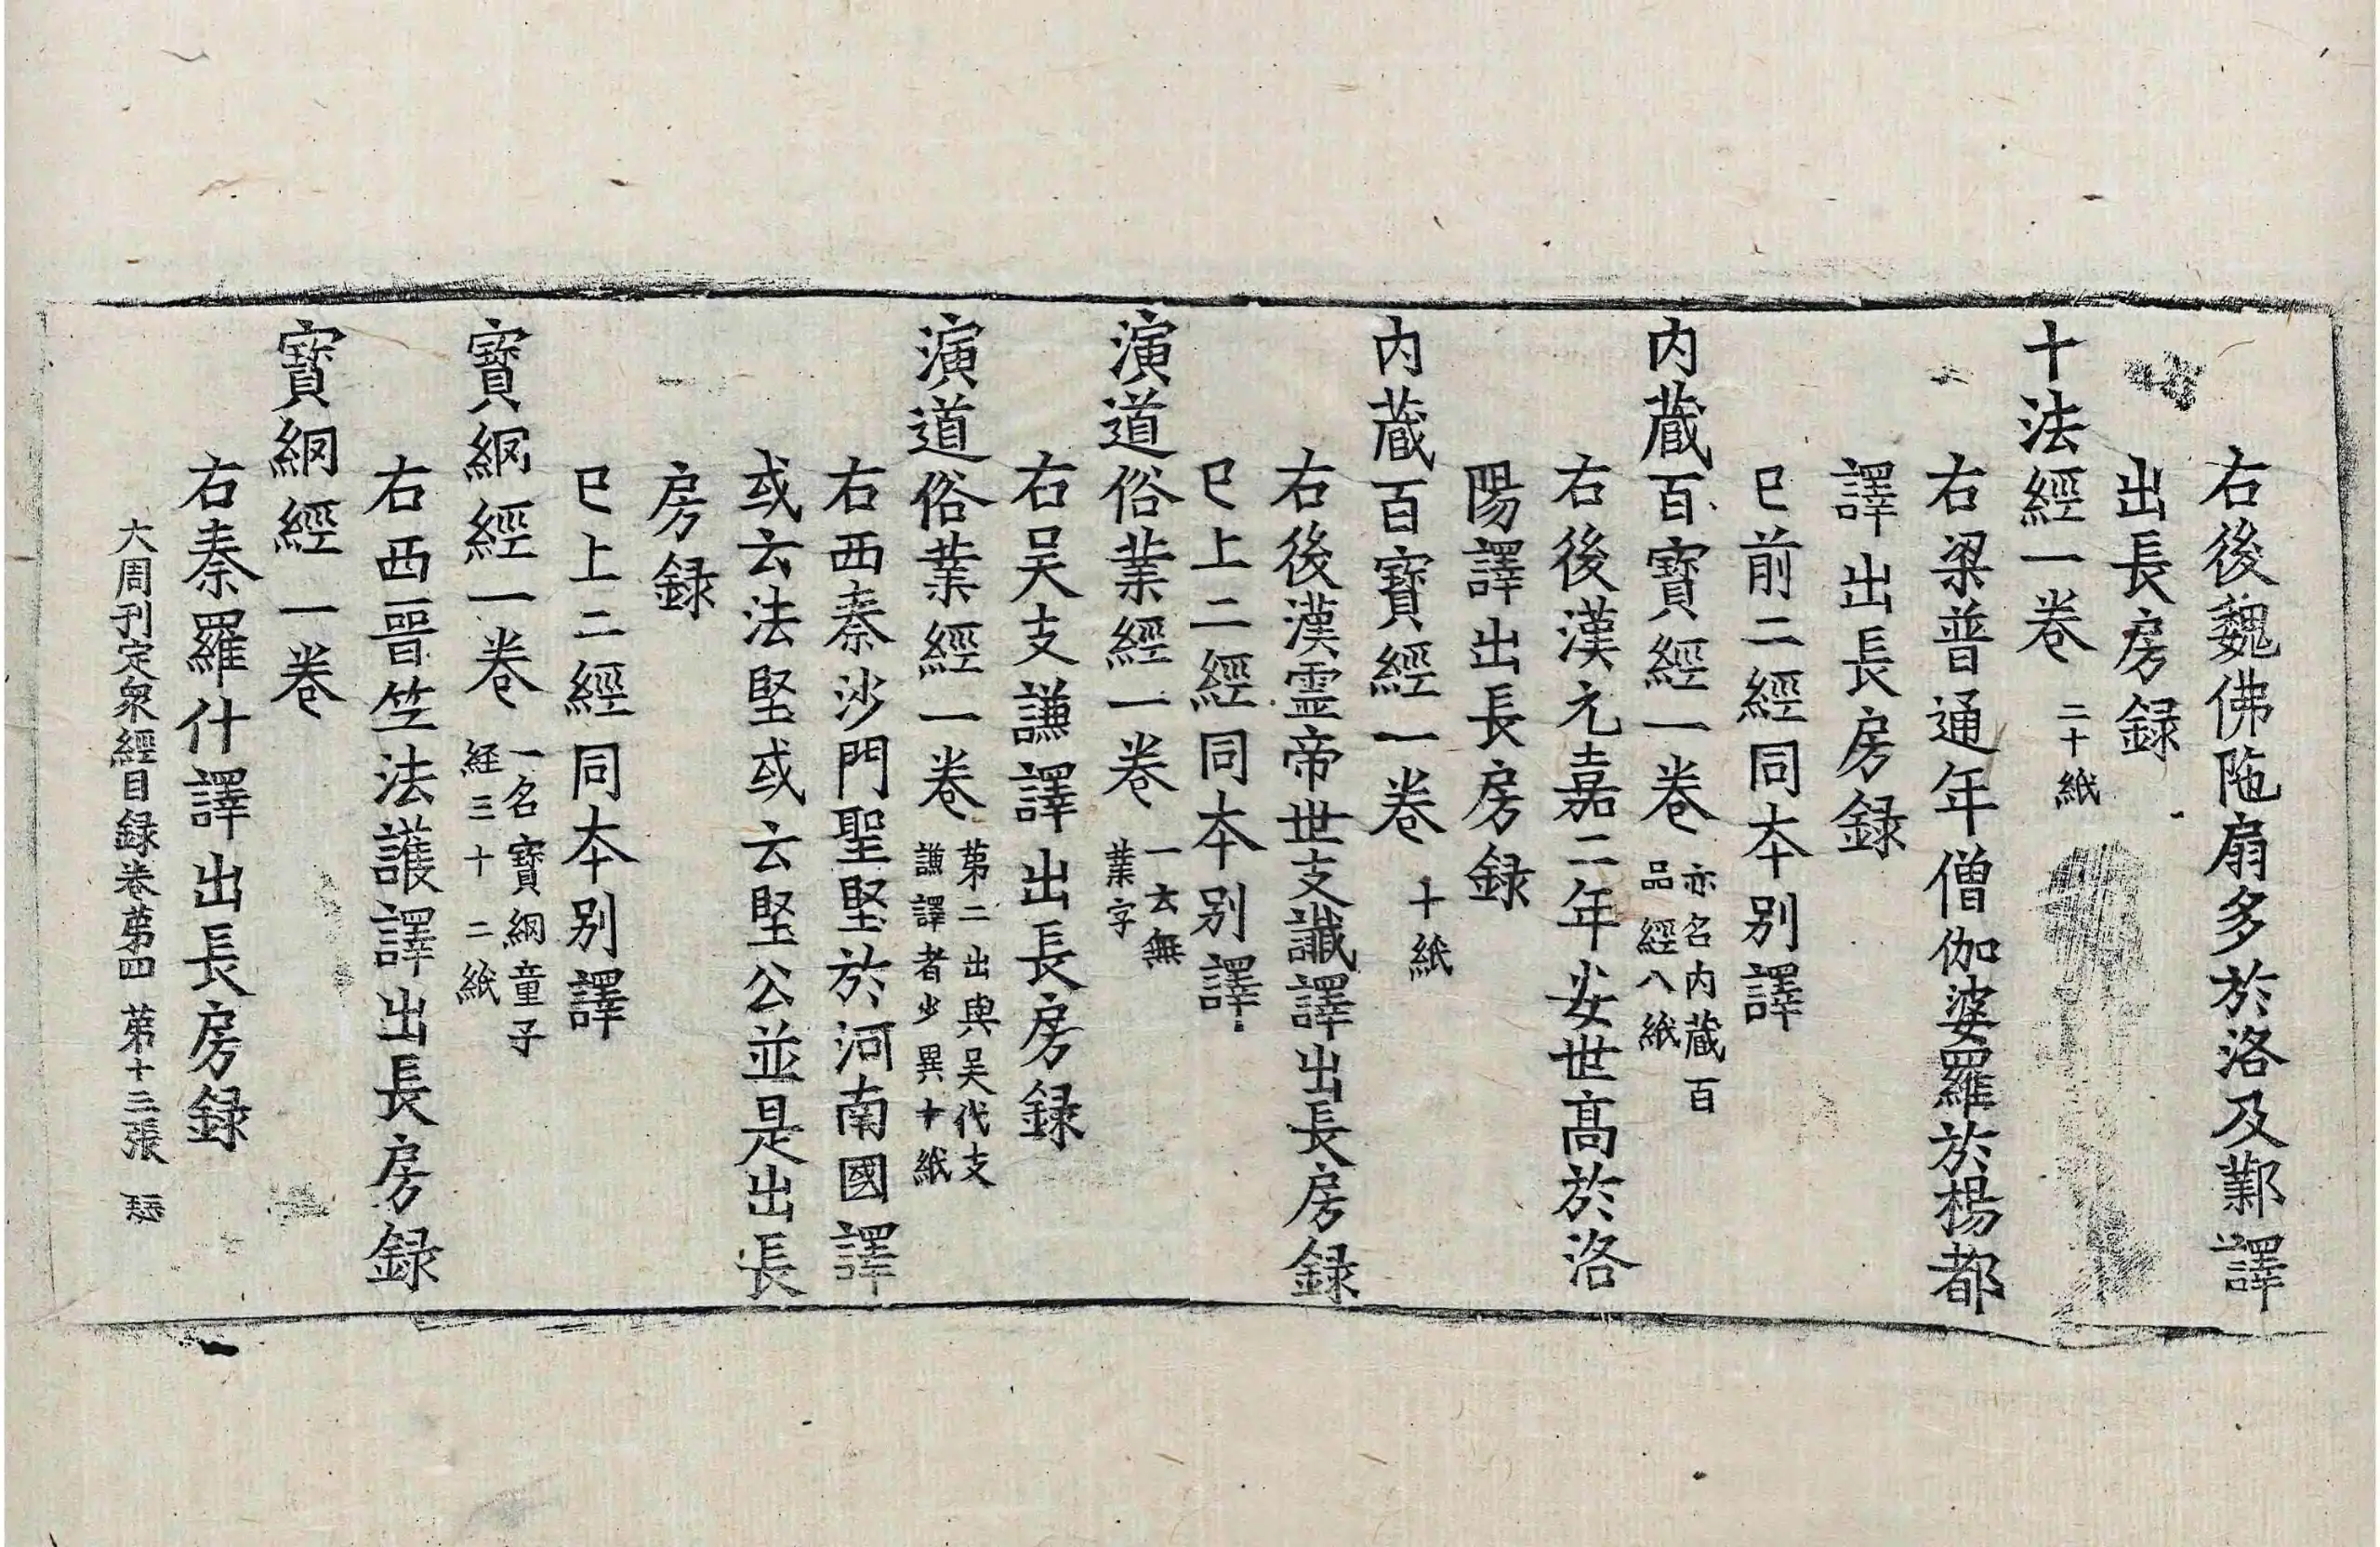 右後魏佛陁扇多於洛及鄴譯
出長房録
十法經一卷 二十紙
右梁普通年僧伽婆羅於楊都
譯出長房録
已前二經同本别譯
内蔵百寶經一卷 亦名内蔵百
品經八紙
右後漢元嘉二年安世髙於洛
陽譯出長房録
内蔵百寶經一卷 十紙
右後漢霊帝世支讖譯出長房録
已上二經同本别譯
演道俗業經一卷 一云無
業字
右吴支謙譯出長房録
演道俗業經一卷 苐二出與吴代支
謙譯者少異十紙
右西秦沙門聖堅於河南國譯
或云法堅或云堅公並是出長
房録
已上二經同本别譯
寳網經一卷 一名寳網童子
経三十二紙
右西晉竺法護譯出長房録
寳網經一卷
右秦羅什譯出長房録
大周刊定衆經目録卷苐四 苐十三張